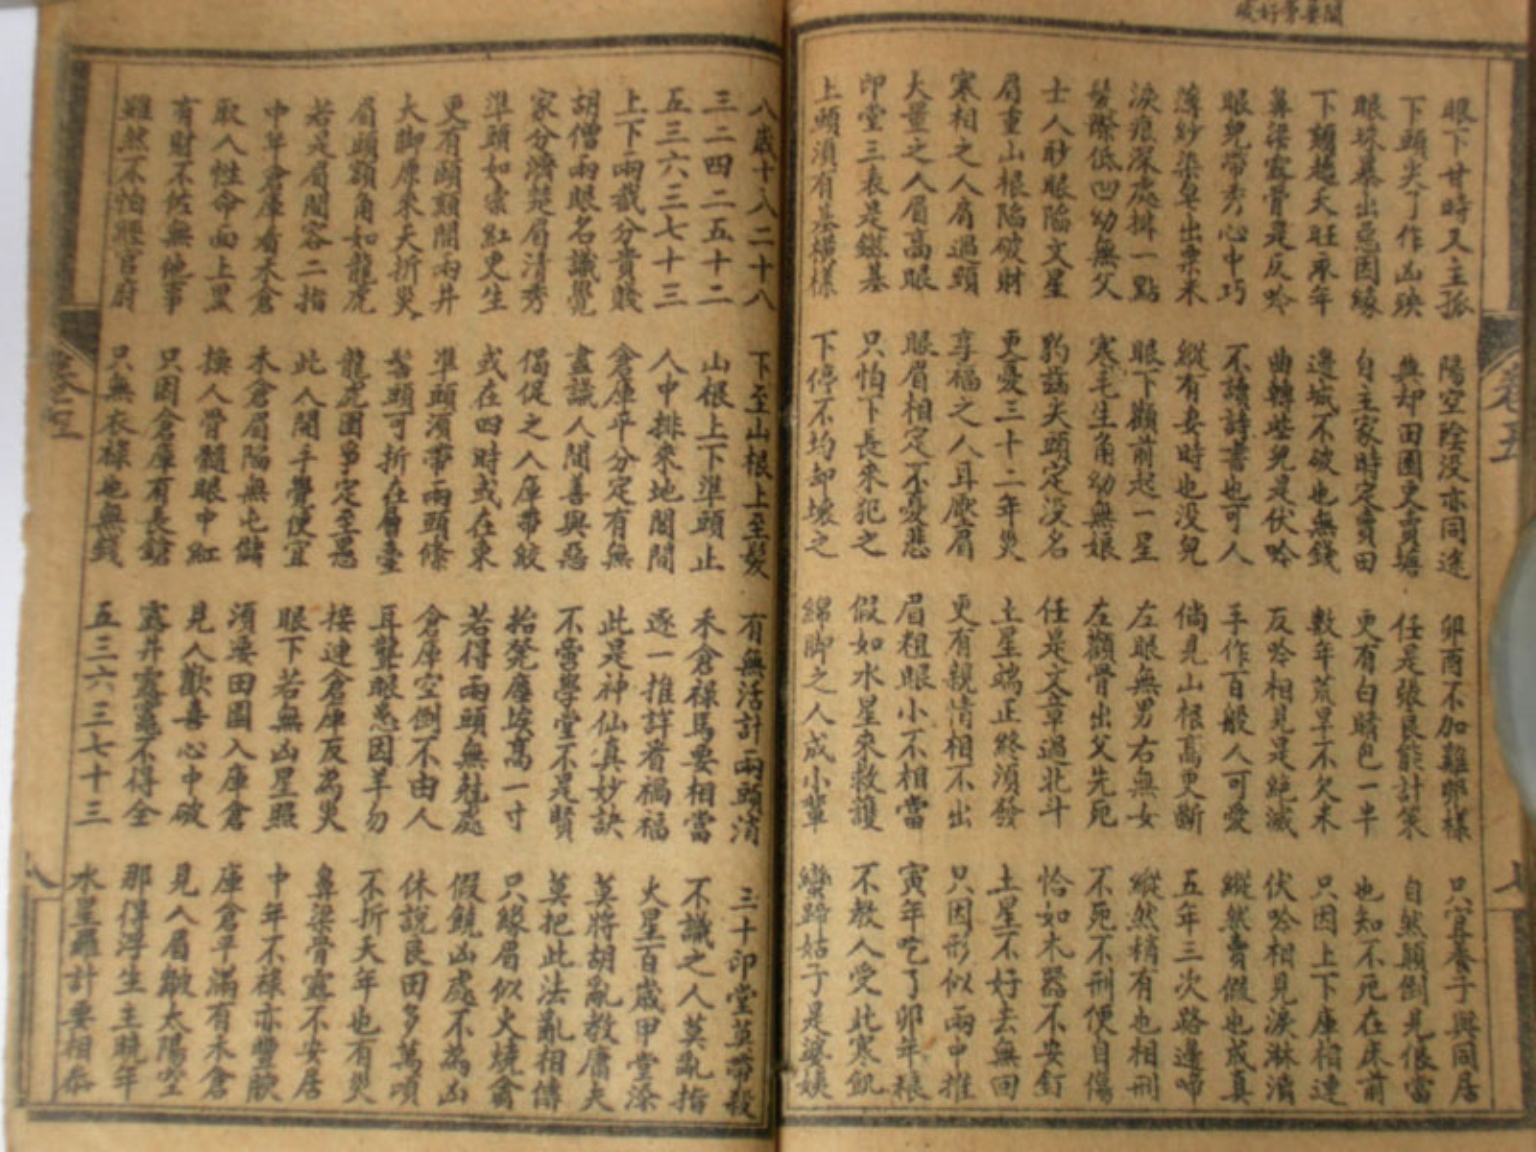 眼下廿時又主孤 陽空陰没亦同途 卯酉不加雞卵樣 只宜養子與同居
下頭尖了作凶殃 典却田園更賣塘 任是張良能計策 自然顛倒見倀當
眼珠暴出惡因緣 自主家時定賣田 更有白睛包一半 也知不死在床前
下頦趫天旺永年 邊城不破也無錢 數年荒旱不欠米 只因上下庫相連
鼻梁露骨是反吟 曲轉些兒是伏吟 反吟相見是絶滅 伏吟相見淚淋漓
眼兒帶秀心中巧 不讀詩書也可人 手作百般人可愛 縱然賣假也成真
薄紗染皂出粟米 縱有妻時也没兒 倘見山根高更斷 五年三次路邊啼
淚痕深處排一點 眼下顴前起一星 左眼無男右無女 縱然稍有也相刑
髮際低凹幼無父 寒毛生角幼無娘 左顴骨出父先死 不死不刑便自傷
士人眇眼陷文星 豹齒尖頭定没名 任是文章過北斗 恰如木器不安釘
眉重山根陷破財 更憂三十二年災 土星端正終須發 土星不好去無回
寒相之人肩過頸 享福之人耳壓眉 更有親情相不出 只因形似雨中推
大量之人眉高眼 眼眉相定不憂悲 眉粗眼小不相當 寅年吃了卯年糧
印堂三表是鎡基 只怕下長來犯之 假如水星來救護 不教人受此寒飢
上頭須有基模樣 下停不均却壞之 綿脚之人成小輩 蠻蹄姑子是婆姨
八歲十八二十八 下至山根上至髮 有無活計兩頭消 三十印堂莫帶殺
三二四二五十二 山根上下準頭止 禾倉祿馬要相當 不識之人莫亂指
五三六三七十三 人中排來地閣間 逐一推詳看禍福 火星百歲甲堂添
上下兩截分貴賤 倉庫平分定有無 此是神仙真妙訣 莫將胡亂教庸夫
胡僧兩眼名識覺 盡識人間善與惡 不帶學堂不是賢 莫把此法亂相傳
家分濟楚眉清秀 偈促之人庫帶紋 抬凳塵埃高一寸 只緣眉似火燒禽
準頭如宗紅更生 或在四時或在東 若得兩頭無剋處 假饒凶處不為凶
更有頤頦間兩井 準頭須帶兩頭絛 倉庫空倒不由人 休說良田多萬頃
大脚原來夭折災 髻頭可折在層臺 耳聾眼患因羊刃 不折天年也有災
眉頭額角如龍虎 龍虎團爭定至惡 接連倉庫反為災 鼻梁骨露不安居
若是眉間容二指 此人開手覺便宜 眼下若無凶星照 中年不祿亦豐肥
中年倉庫看禾倉 禾倉眉陷無屯儲 須要田園入庫倉 庫倉平滿有禾倉
取人性命面上黑 換人骨髓眼中紅 見人歡喜心中破 見人眉皺太陽空
有財不佐無他事 只因倉庫有長鎗 露井露竈不得全 那得浮生主晚年
雖然不怕經官府 只無衣祿也無錢 五三六三七十三 水星羅計要相參
卷五
八